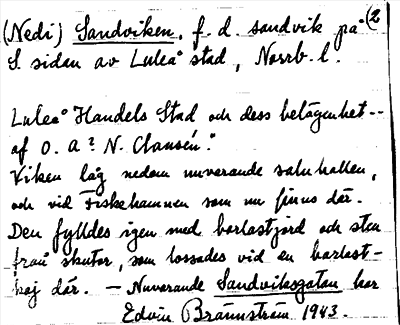 (Nedi) Sandviken, f. d. sandvik på (2
S. sidan av Luleå stad, Norrb. l.
Luleå Handels Stad och dess belägenhet --
af O. A? N. Clausén:
Viken låg nedom nuvarande saluhallen,
och vid Fiskehamnen som nu finns där.
Den fylldes igen med barlastjord och sten
från skutor, som lossades vid en barlast-
kaj där. — Nuvarande Sandviksgatan har
Edvin Brännström 1943.